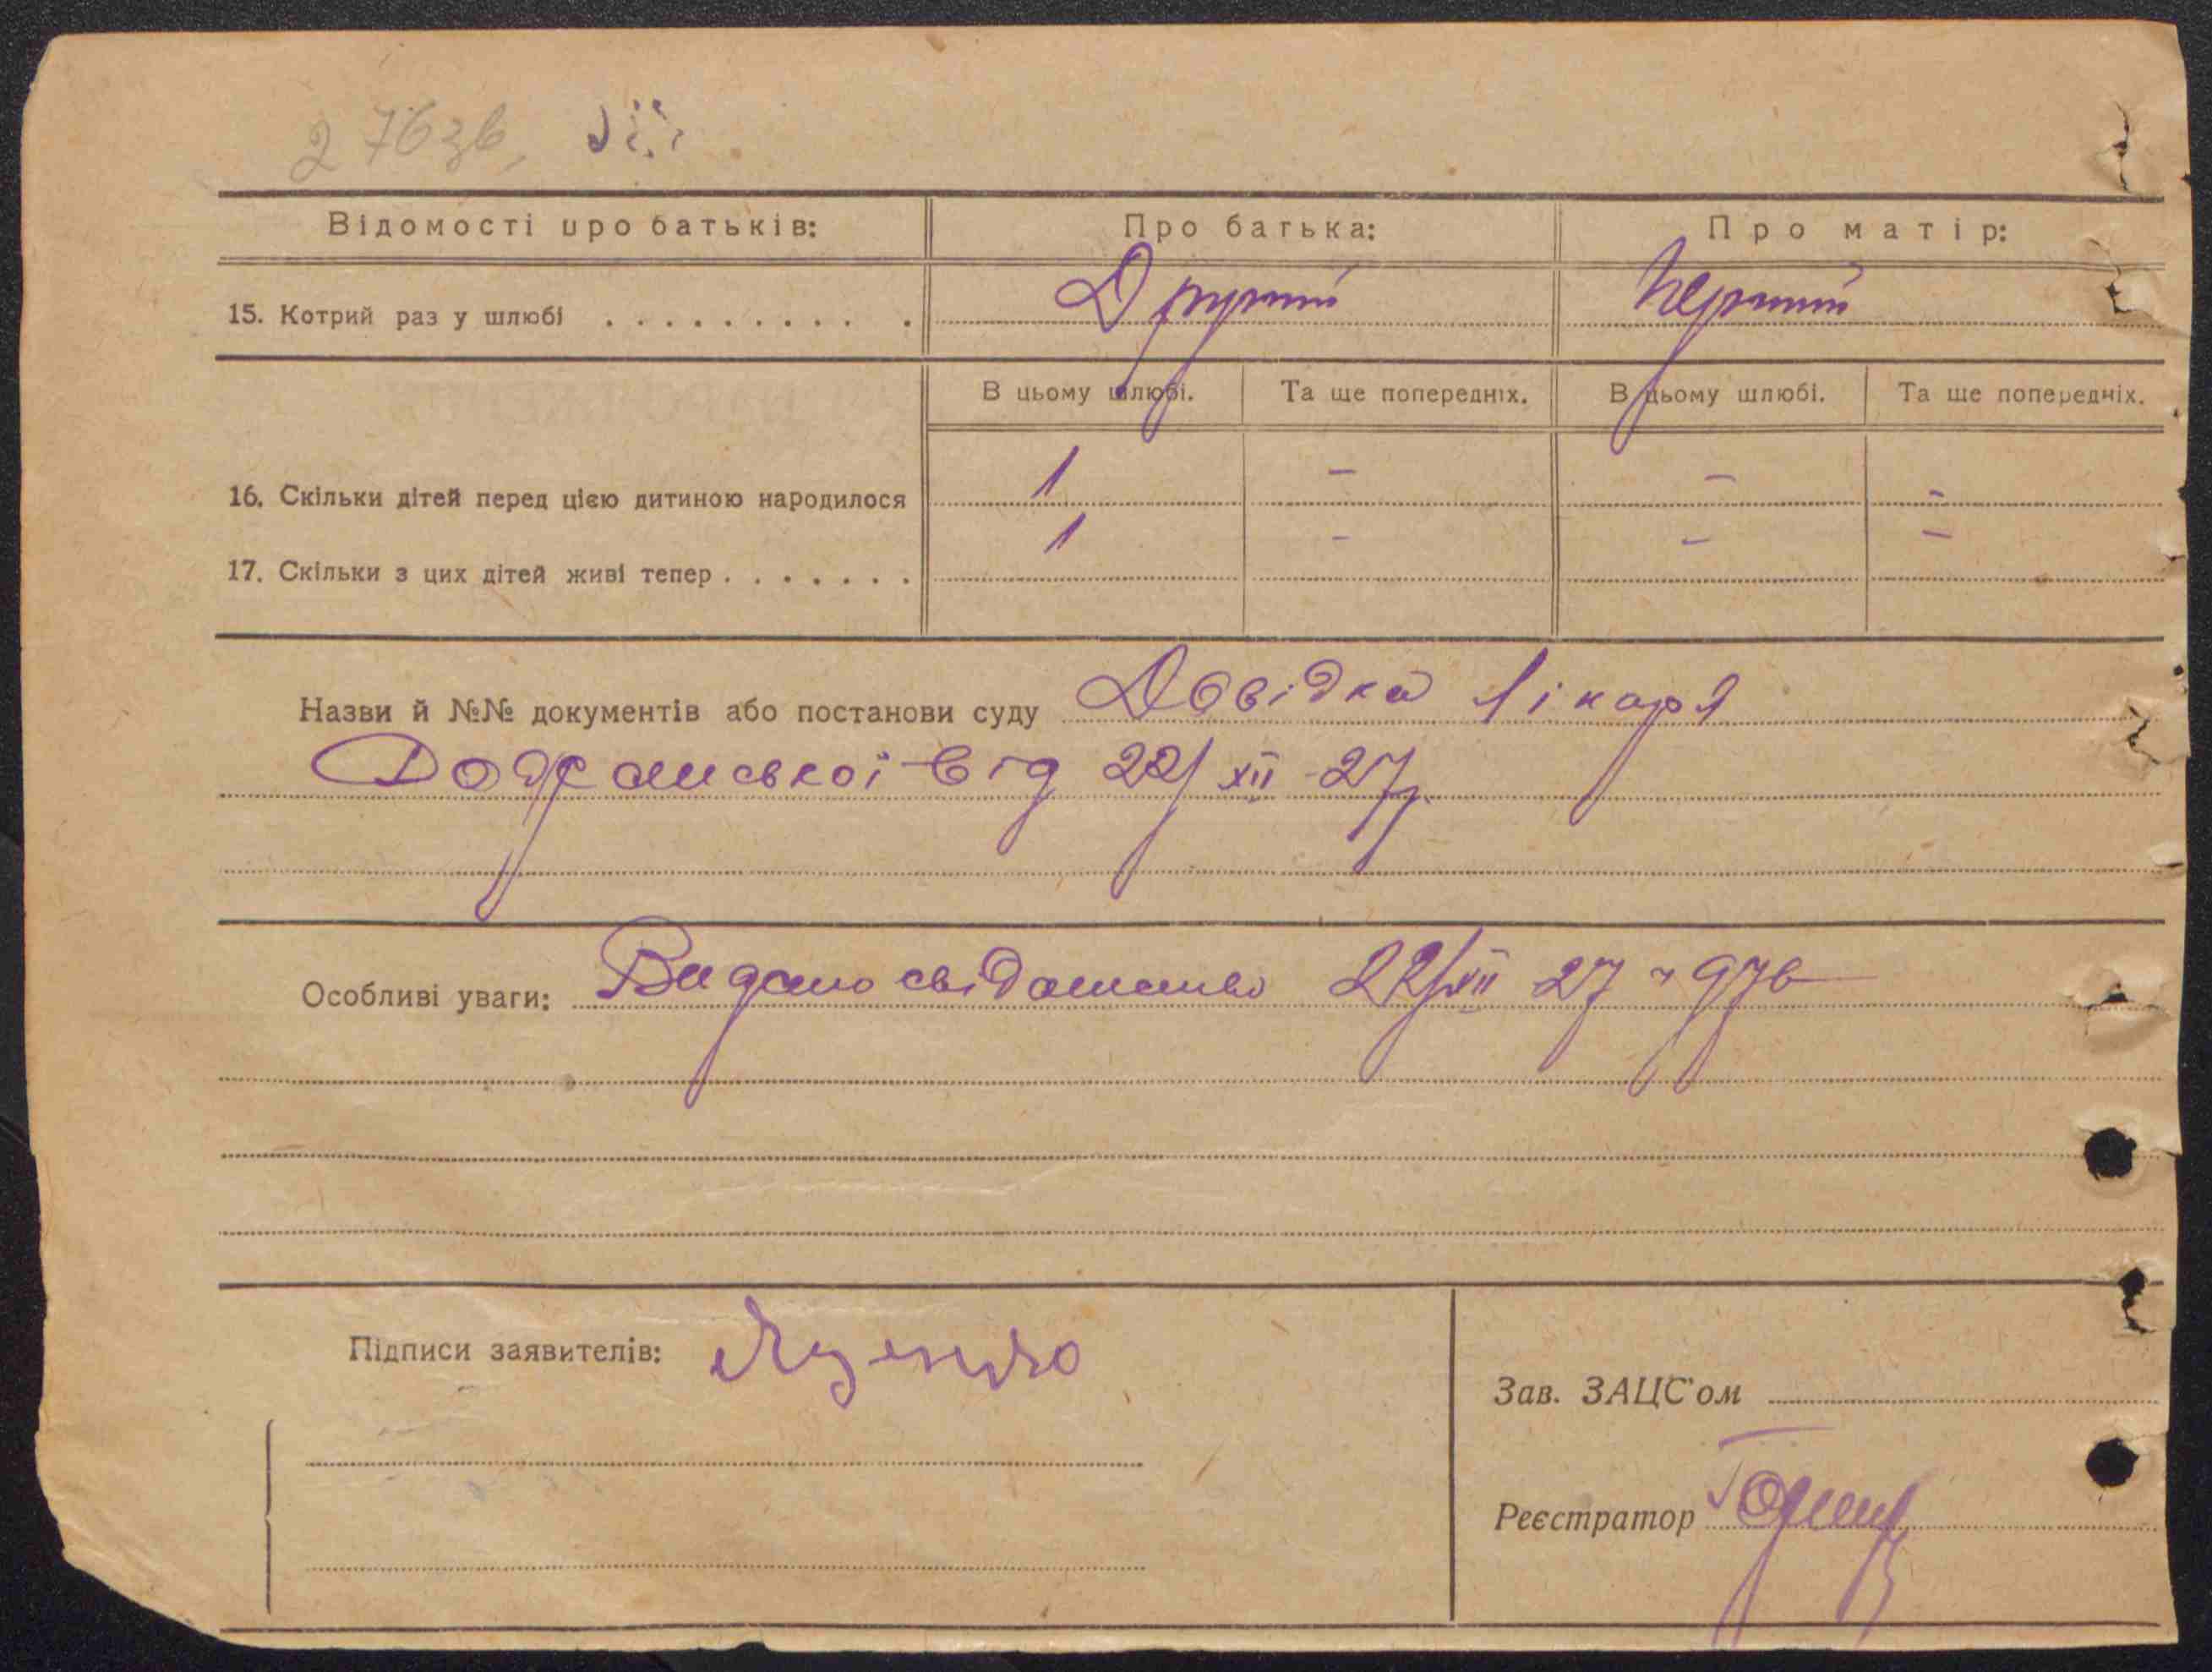 276зв,
Відомості про батьків: Про батька: Про матір:
15. Котрий раз у шлюбі . . . . . . . . . . . Другий Перший
В цьому шлюбі. Та ще попередніх. В цьому шлюбі. Та ще попередніх.
16. Скільки дітей перед цією дитиною народилося 1 - - -
17. Скільки з цих дітей живі тепер . . . . . . . 1 - - -
Назви й №№ документів або постанови суду Довідка лікаря
від 22/XII-27р.
Особливі уваги: Видано свідоцтво 22/XII 27 ч 976
Підписи заявителів: Яценко
Зав. ЗАЦС'ом
Реєстратор